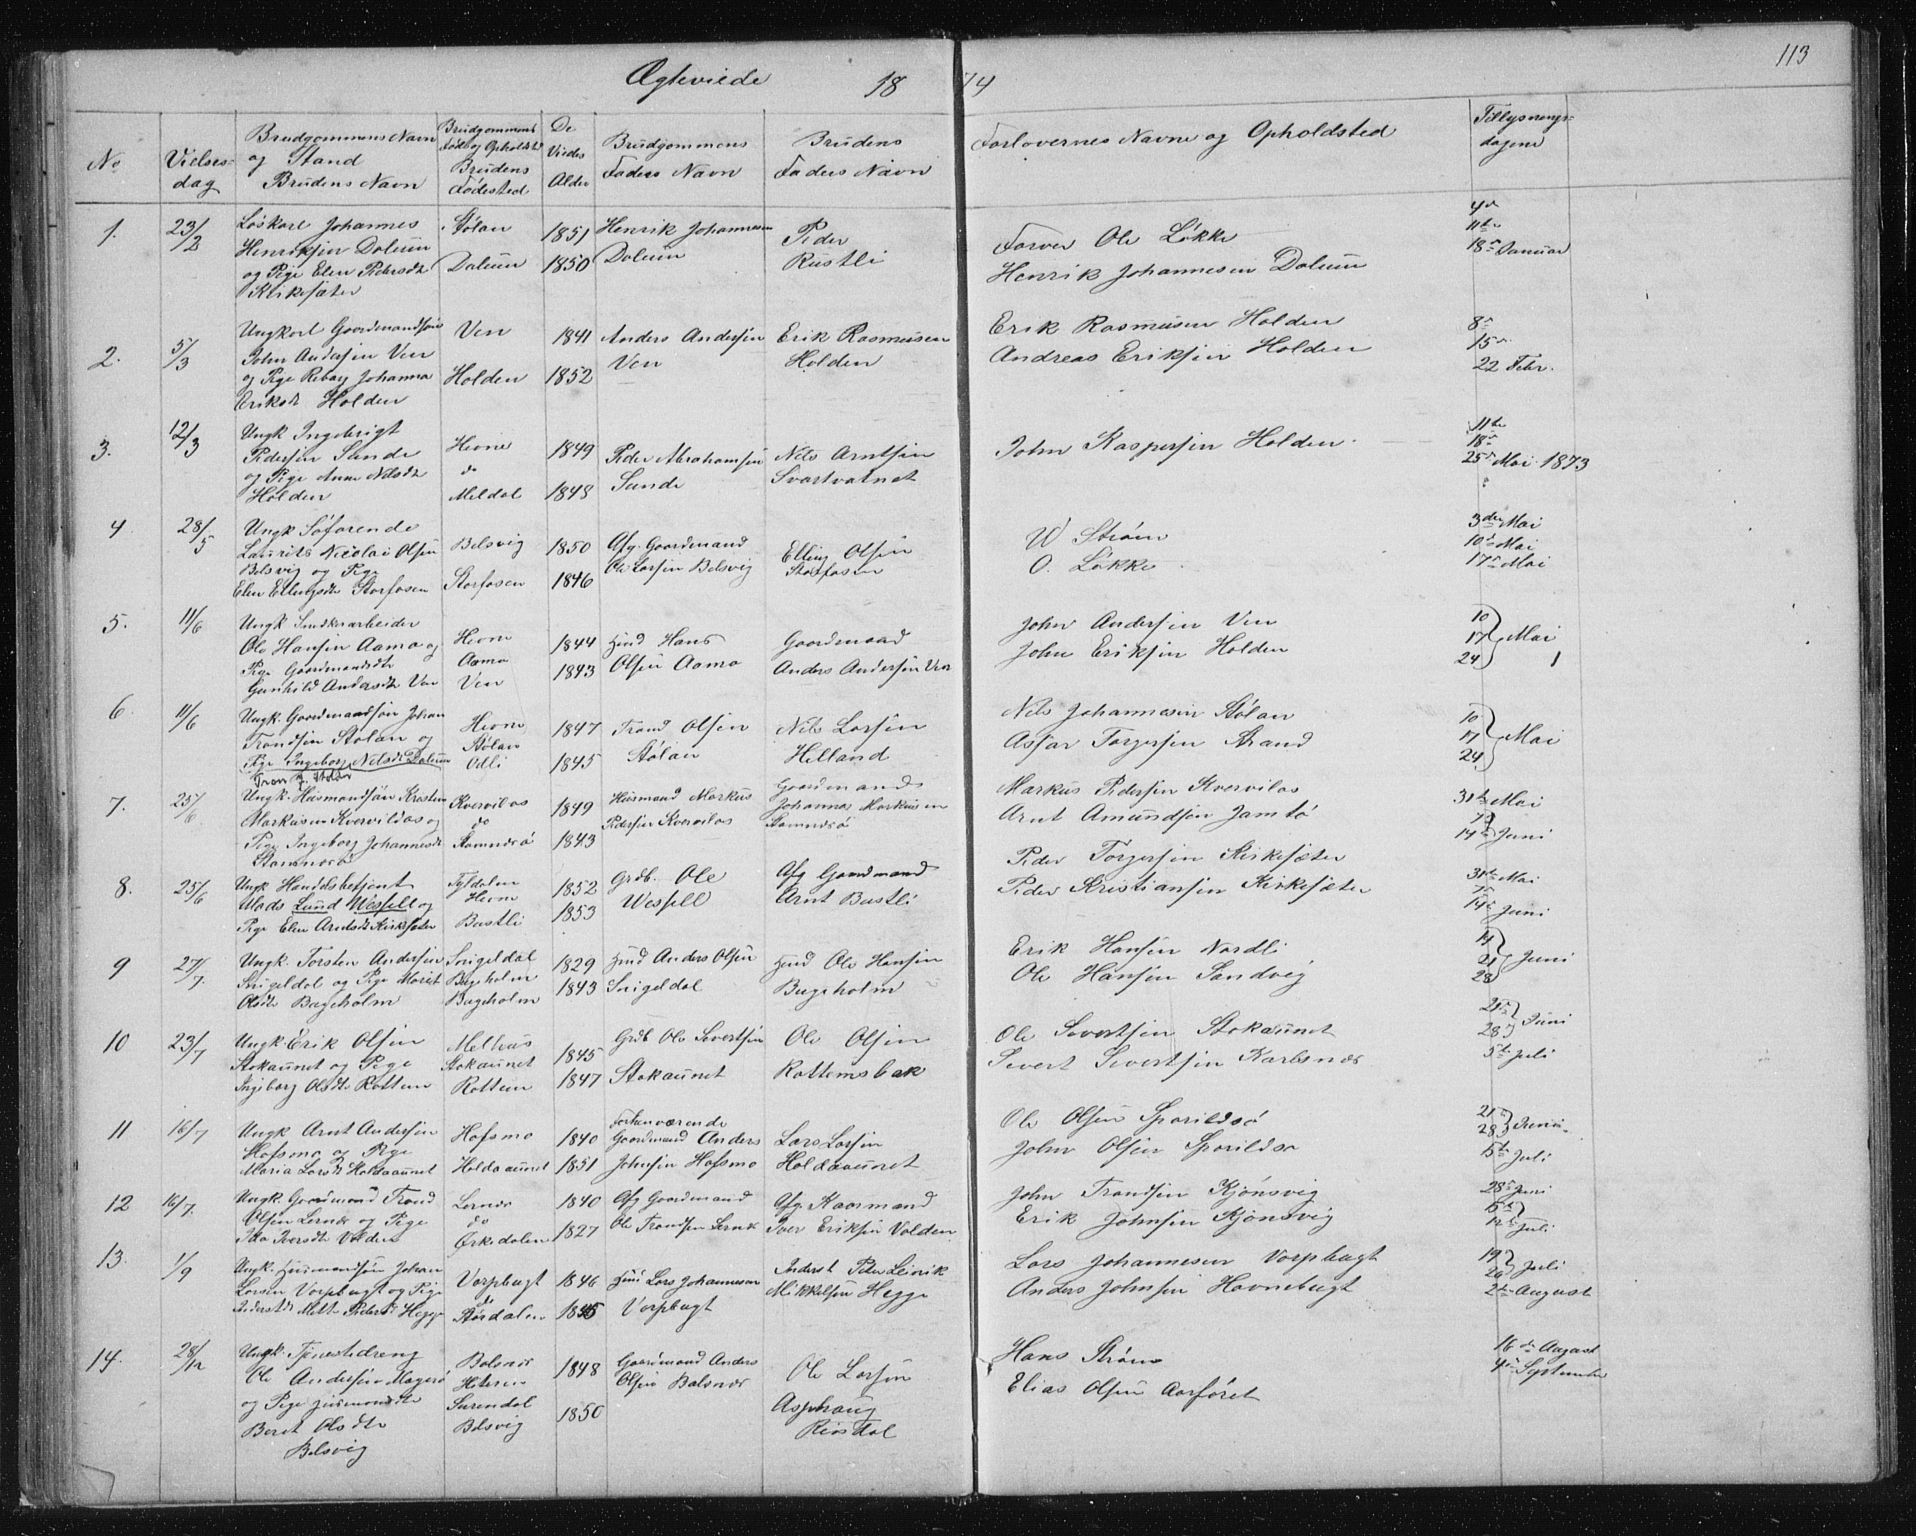 113
Ægteviede 1874
No
Vielsesdag
Brudgommens Navn og Stand Brudens Navn
Brudgommens Føde og Opholdst Brudens Fødested
De Viedes Alder
Brudgommens Faders Navn
Brudens Faders Navn
Forlovernes Navne og Opholdsted
Tillysningsdagene
1. 23/2
Løskarl Johannes
Henriksen Dalum
og Pige Elen Pedersdt
Kirkesæter
Stølan
Dalum
1851
1850
Henrik Johannesen
Dalum
Peder
Rustli
Farver Ole Løkke
Henrik Johannesen Dalum
4de
11te
18de Januar
2. 5/3
Ungkarl Gaardmandsøn
John Andersen Ven
og Pige Johanna
Eriksdt Holden
Ven
Holden
1841
1852
Anders Andersen
Ven
Erik Rasmusen
Holden
Erik Rasmusen Holden
Andreas Eriksen Holden
8de
15de
22 Febr.
3. 12/3
Ungk Ingebrigt
Pedersen Sunde
og Pige Anne Nilsdt
Holden
Hevne
do
Meldal
1849
1848
Peder Abrahamsen
Sunde
Nils Arntsen
Svartvatnet
John Kaspersen Holden
11te
18de
25de Mai 1873
4. 28/5
Ungk Søfarende
Laurits Nicolai Olsen
Belsvig og Pige
Elen Ellingsdt Storfosen
Belsvig
Storfosen
1850
1846
Afg. Gaardmand
Ole Larsen Belsvig
Elling Olsen
Storfosen
W Strøm
O. Løkke
3die Mai
10de Mai
17de Mai
5. 11/6
Ungk Snedkerarbeider
Ole Hansen Aamo og
Pige Gaardmandsdt
Gunhild Andersdt Ven
Hevne
Aamo
Ven
1844
1843
Hmd Hans
Olsen Aamo
Gaardmand
Anders Andersen Ven
John Andersen Ven
John Eriksen Holden
10
17 Mai
24
6. 11/6
Ungk. Gaardmandsøn Johan
Trondsen Stølan og
Pige Ingeborg Nilsdt Dalum
Hevne
Stølan
Odli
1847
1845
Trond Olsen
Stølan
Nils Larsen
Helland
Nils Johannesen Stølan
Asfar Torgersen Strand
10
17 Mai
24
7. 25/6
Ungk. Husmandsøn Kresten
Markusen Kvervilaas og
Pige Ingeborg Johannesdt
Stamnesø
Kvervilas
do
Stamnesø
1849
1843
Husmand Markus
Pedersen Kvervilas
Gaardmand
Johannes Markusen
Stamnesø
Markus Pedersen Kvervilas
Arnt Amundsen Jamtø
31te Mai
7de
14de Juni
8. 25/6
Ungk Handelsbetjent
Mads Lund Wessell og
Pige Elen Arntsdt Kirksæter
Tydalen
Hevne
Bustli
1852
1853
Grdb. Ole
Wessell
Afg Gaardmand
Arnt Bustli
Peder Torgersen Kirkesæter
Peder Kristiansen Kirkesæter
31te Mai
7de
14de Juni
9 27/7.
Ungk. Torsten Andersen
Snigeldal og Pige Marit
Olsdt Bugeholm
Snigeldal
Bugeholm
Bugeholm
1829
1843
Hmd Anders Olsen
Snigeldal
Hmd Ole Hansen
Bugeholm
Erik Hansen Nordli
Ole Hansen Sandvig
14
21 Juni
28
10 23/7
Ungk. Erik Olsen
Stokaunet og Pige
Ingeborg Olsdt Rottem
Melhus
Stokaunet
Rottem
1845
1847
Grdb Ole Sivertsen
Stokaunet
Ole Olsen
Rottemsbak
Ole Sivertsen Stokaunet
Sivert Sivertsen Karlsnes
21de
28 Juni
5te Juli
11 16/7
Ungk Arnt Andersen
Hofsmo og Pige
Maria Larsdt Holdaaunet
Hofsmo
Holdaaunet
1840
1851
Forhenværende
Gaardmand Anders
Johnsen Hofsmo
Lars Larsen
Holdaaunet
Ole Olsen Sporildsø
John Olsen Sporildsø
21de
28 Juni
5te Juli
12 16/7.
Ungk. Gaardmand Trond
Olsen Lernes og Pige
Iversdt Volden
Lernes
do
Ørkedalen
1840
1827
Afg Gaardmand
Ole Trondsen Lernes
Afg Kaarmand
Iver Eriksen Volden
John Trondsen Kjønsvig
Erik Johnsen Kjønsvig
28de Juni
5te
12te Juli
13. 1/9
Ungk. Husmandsøn Johan
Larsen Vorpbugt og Pige
Pedersdt Hegge
Vorpbugt
do
Størdalen
1846
1845
Hmd Lars Johannesen
Vorpbugt
Peder Leinik
Mikkelsen Hegge
Lars Johannesen Vorpbugt
Anders Johnsen Havnebugt
19
26 Juli
2de August
14. 28/12
Ungk. Tjenestedreng
Ole Andersen Magerø
og Pige Husmandsdt
Beret Olsdt
Belsvig
Balsnes
Hiteren
Surendal
Belsvig
1848
1850
Gaardmand Anders
Olsen Balsnes
Ole Larsen
Asphaug
Rindal
Hans Strøm
Elias Olsen AarfØret
16de August
4de September